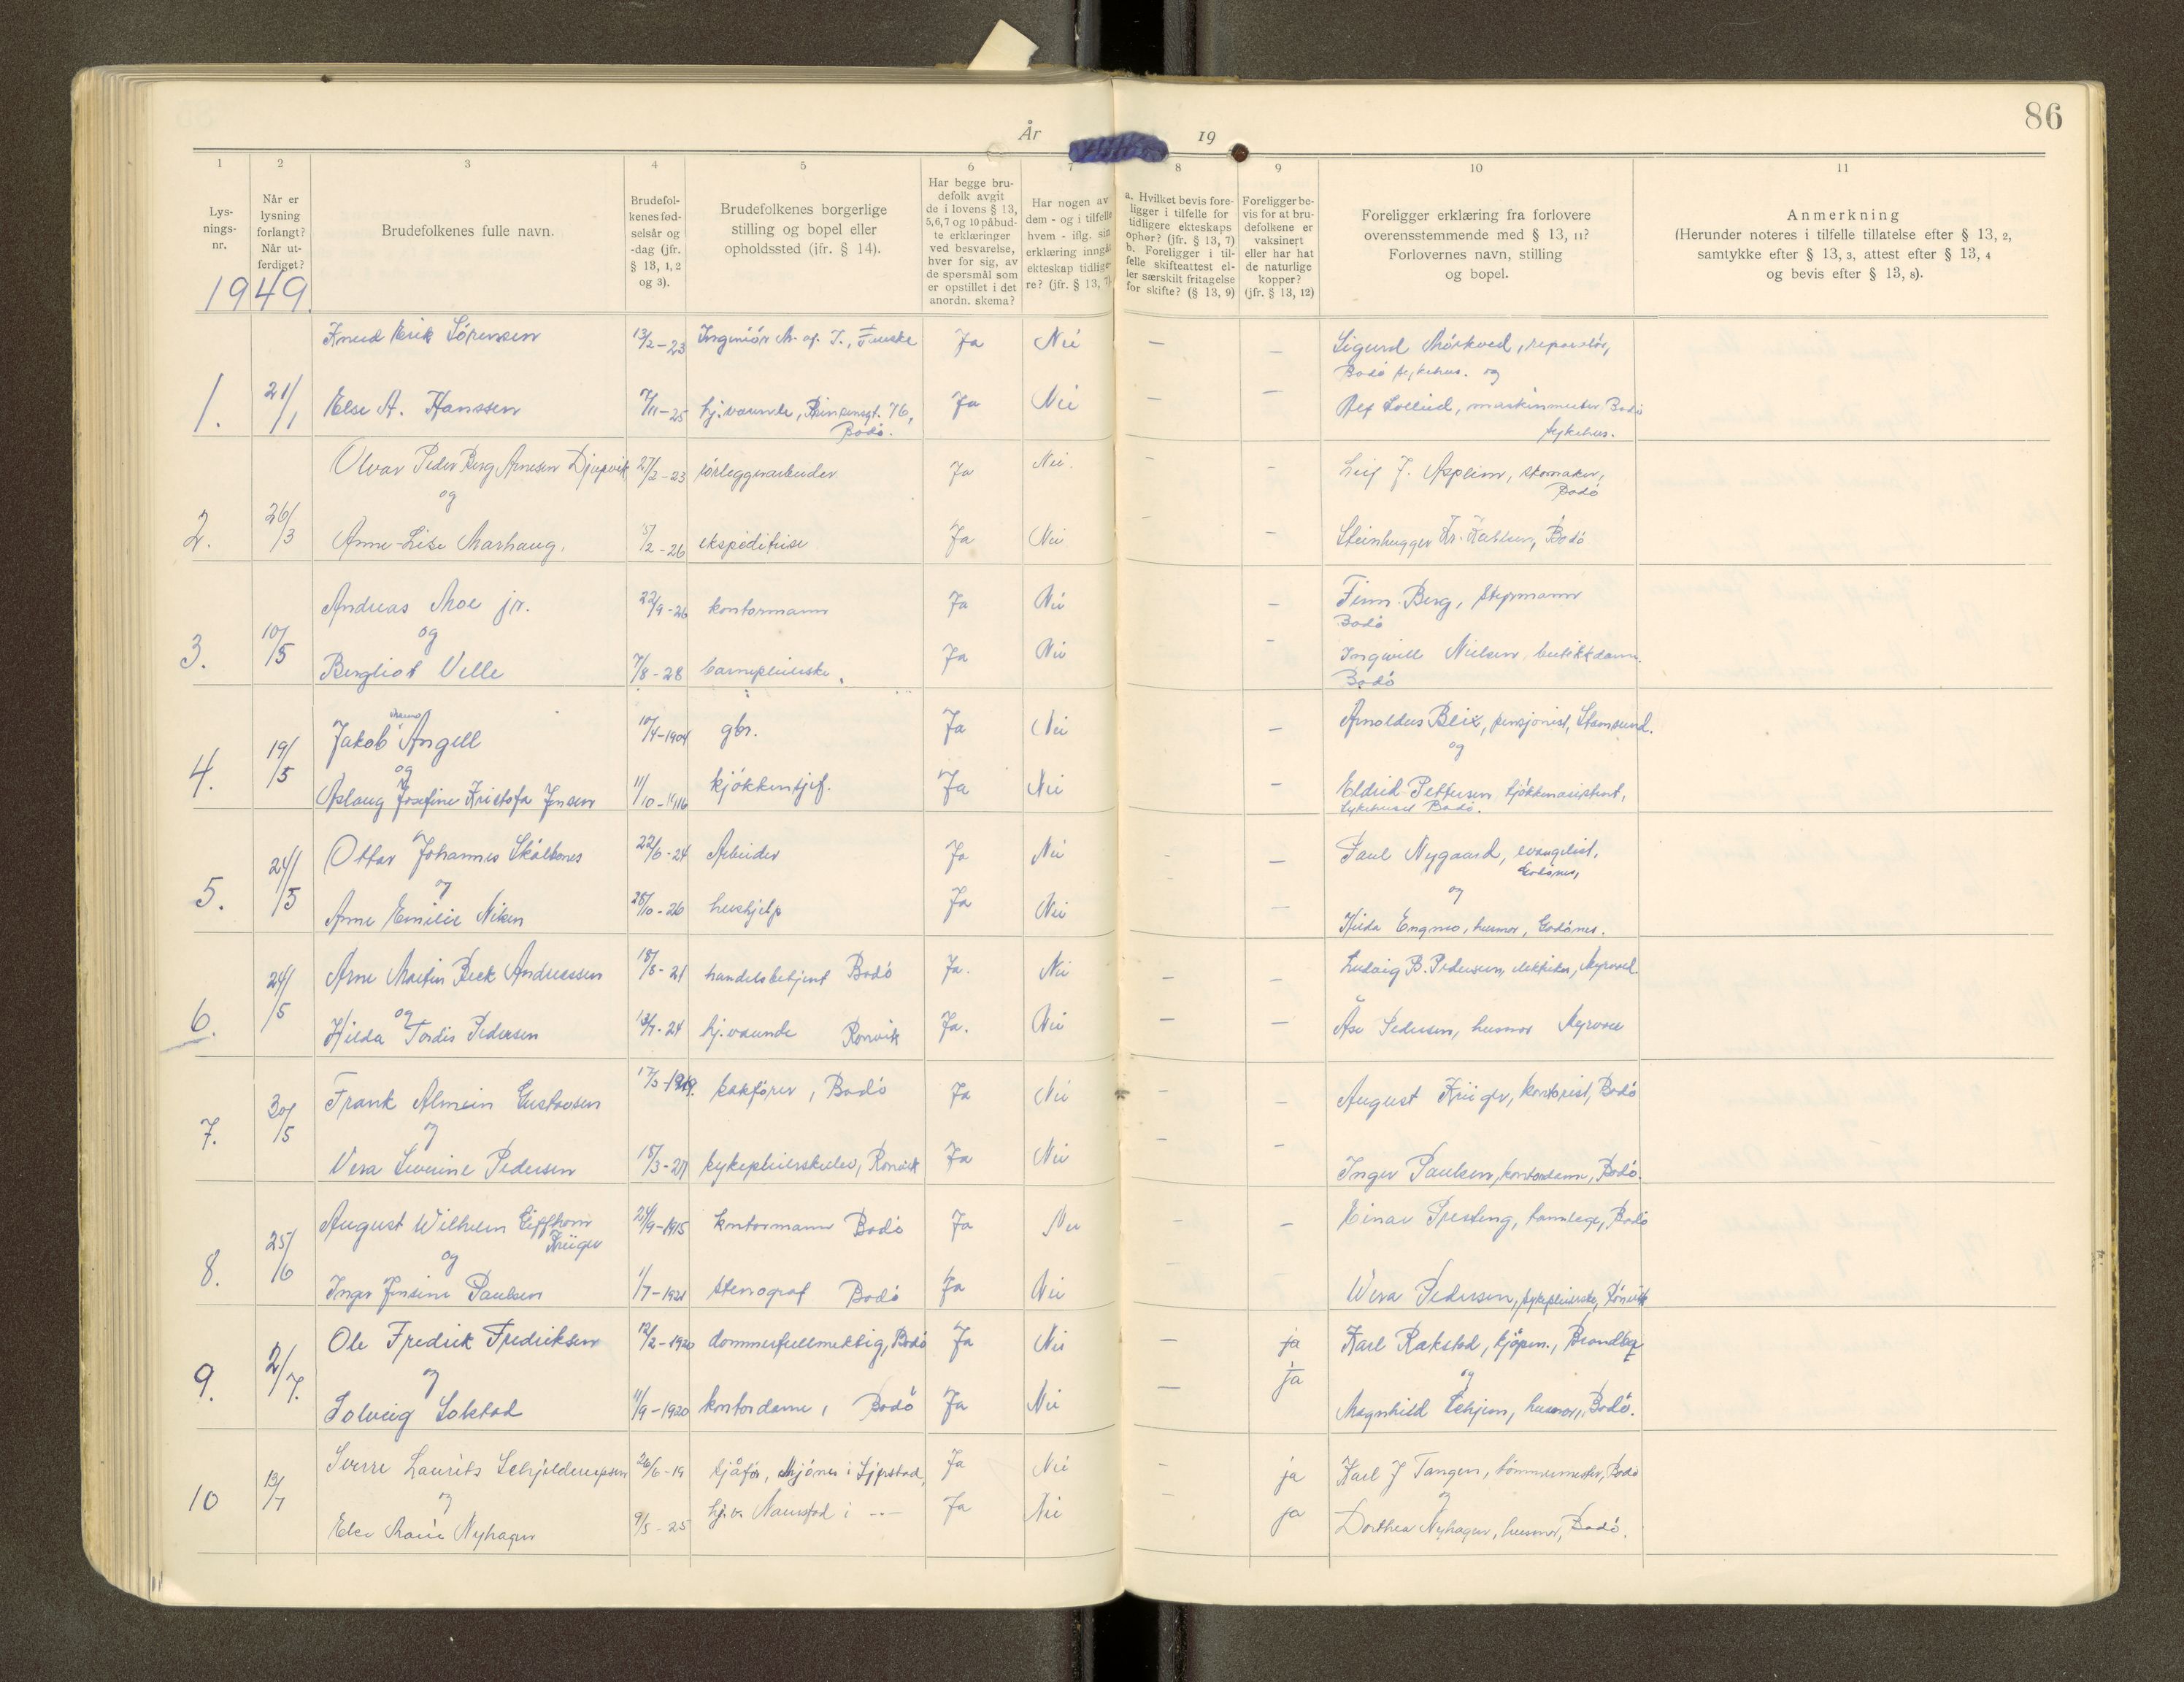 86
År 19
1 2 3 4 5 6 7 8 9 10 11
Lysnings-nr.
Når er lysning forlangt? Når utferdiget?
Brudefolkenes fulle navn.
Brudefolkenes fødselsår og -dag (jfr. § 13, 1, 2 og 3).
Brudefolkenes borgerlige stilling og bopel eller opholdssted (jfr. § 14).
Har begge brudefolk avgit de i lovens § 13, 5, 6, 7 og 10 påbudte erklæringer ved besvarelse, hver for sig, av de spørsmål som er opstillet i det anordn. skema?
Har nogen av dem - og i tilfelle hvem - iflg. sin erklæring inngått ekteskap tidligere? (jfr. § 13, 7)
a. Hvilket bevis foreligger i tilfelle for tidligere ekteskaps ophør? (jfr. § 13, 7) b. Foreligger i tilfelle skifteattest eller særskilt fritagelse for skifte? (§ 13, 9)
Foreligger bevis for at brudefolkene er vaksinert eller har hat de naturlige kopper? (jfr. § 13, 12)
Foreligger erklæring fra forlovere overensstemmende med § 13, 11? Forlovernes navn, stilling og bopel.
Anmerkning (Herunder noteres i tilfelle tillatelse efter § 13, 2, samtykke efter § 13, 3, attest efter § 13, 4 og bevis efter § 13, 8).
1949.
Knud Erik Sørensen 13/2-23 Ingeniør M. af I., Fauske Ja Nei — — Sigurd Mørkved, reparatør,
Bodø sykehus. og
1. 21/1 Else A. Hanssen 7/11-25 hj.værende, Prinsensgt. 76, Ja Nei — — Alf Sollied, maskinmester Bodø
Bodø. sykehus.
Olvar Peder Berg Arnesen Djupvik 27/2-23 rørleggerarbeider Ja Nei. - - Leif J. Asplien, skomaker,
og Bodø
2. 26/3 Anne-Lise Marhaug. 5/2-26 ekspeditrise Ja Nei - - Steinhugger Kr. Karlsen, Bodø
Andreas Moe jr. 22/9-26 kontormann Ja Nei - Finn Berg, Styrmann
og Bodø
3. 10/5 Bergliot Velle 7/8-28 barnepleierske. Ja Nei - Ingvill Nielsen butikkdame.
Bodø
Jakob Angell 10/4-1904 gbr. Ja Nei - Arnoldus Blix, pensjonist, Stamsund.
4. 19/5 og og
Aslaug Josefine Kristofa Jensen 11/10-1916 kjøkkensjef. Ja Nei - Eldrid Pettersen kjøkkenassistent,
Sykehuset Bodø.
Ottar Johannes Skålbones 22/6-24 Arbeider Ja Nei - — Paul Nygaard, evangelist,
Godønes,
5. 24/5 og og
Anne Emilie Nilsen 28/10-26 hushjelp Ja Nei - — Hilda Engmo, husmor, Godønes.
Arne Martin Beck Andreassen 18/8-21 handelsbetjent Bodø Ja. Nei — — Ludvig B. Pedersen, elektriker, Myrvoll
6. 24/5 og
Hilda Tordis Pedersen 13/7-24 hj.værende Rønvik Ja. Nei — — Åse Pedersen, husmor Myrvoll
Frank Almein Gustavsen 17/5-1919. sjåfører, Bodø Ja Nei - - August Krüger, kontorist, Bodø
7. 30/5 og
Vera Severine Pedersen 18/3-27 sykepleierskeelev, Rønvik Ja Nei - - Inger Paulsen, kontordame, Bodø.
August Wilhelm Giffhorn 24/9-1915 kontormann Bodø Ja Nei - - Einar Presteng, tannlege, Bodø
Krüger
8. 25/6 og
Inger Jensine Paulsen 1/7-1921 stenograf Bodø Ja Nei - - Wera Pedersen, sykepleierske, Rønvik
Ole Fredrik Fredriksen 12/2-1920 dommerfullmektig, Bodø Ja Nei — ja Karl Rakstad, kjøpm., Brandbg
9. 2/7. og og
Solveig Solstad 11/9-1920 kontordame, Bodø Ja Nei — ja Magnhild Schjem, husmor, Bodø.
Sverre Laurits Schjelderupsen 26/6-19 sjåfør, Misjønes i Gjerstad, Ja Nei - ja Karl J Tangen, tømmermester, Bodø
10 13/7 og og
Else Marie Nyhagen 9/5-25 hj.v. Naurstad i -.- Ja Nei - ja Dorthea Nyhagen, husmor, Bodø.